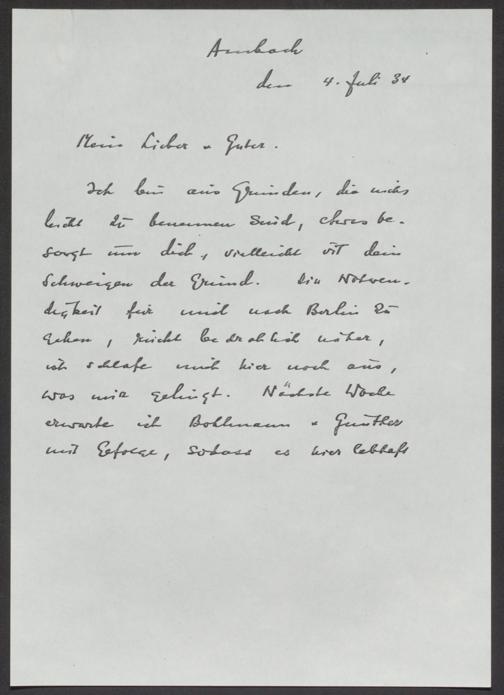 Ambach
den 4. Juli 34
Mein Lieber & Guter.
Ich bin aus Gründen, die nicht
leicht zu benennen sind, etwas be-
sorgt um dich, vielleicht ist dein
Schweigen der Grund. Die Notwen-
digkeit für mich nach Berlin zu
gehen, rückt bedrohlich näher,
ich schlafe mich hier noch aus,
was mir gelingt. Nächste Woche
erwarte ich Bohlmann & Günther
mit Gefolge, sodass es hier lebhaft